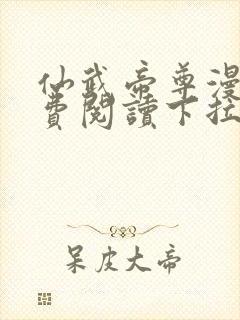 仙武帝尊漫
費閱讀下拉
呆皮大帝